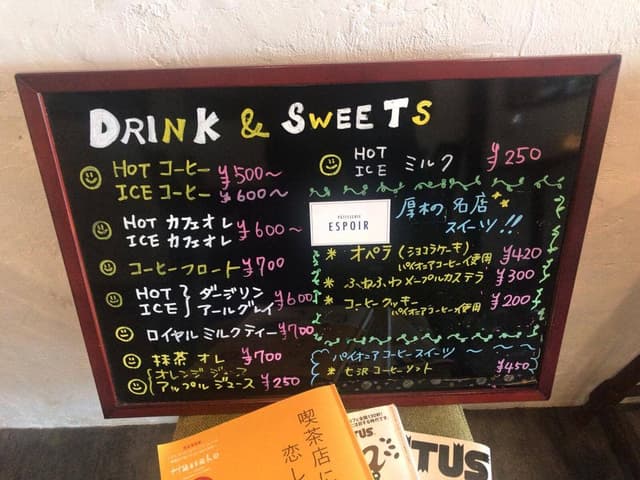 DRINK & SWEETS
HOT コーヒー ¥500〜
ICE コーヒー ¥600〜
HOT カフェオレ
ICE カフェオレ
¥600〜
コーヒーフロート ¥700
HOT
ICE
} ダージリン
アールグレイ
¥600
ロイヤルミルクティー ¥700
抹茶 オレ ¥700
オレンジ ジュース
アップル ジュース ¥250
HOT
ICE
ミルク ¥250
PATISSERIE
ESPOIR
厚木の名店
スイーツ!!
* オペラ(ショコラケーキ) ¥420
パイオニアコーヒー使用
* ふわふわメープルカステラ ¥300
* コーヒークッキー ¥200
パイオニアコーヒー使用
パイオニアコーヒースイーツ 〜
* 七沢コーヒーソフト ¥450
喫茶店に
恋し
TUS
TUS